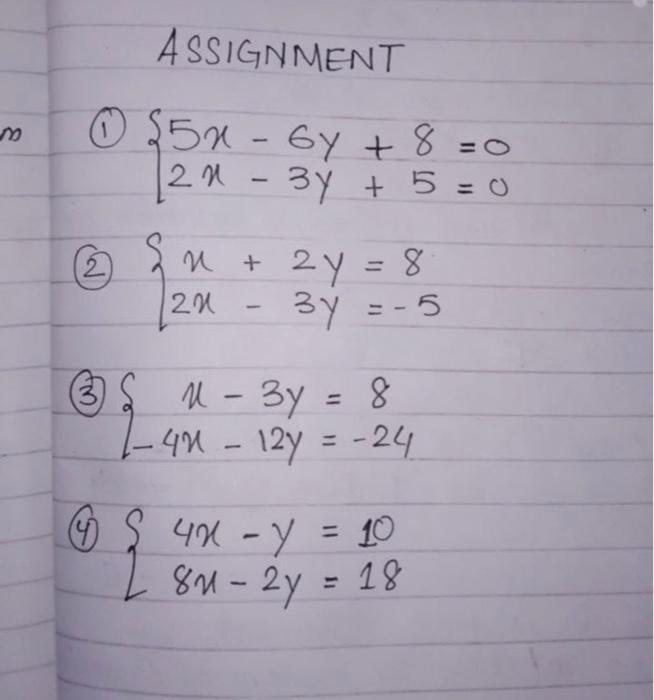 ASSIGNMENT
① { 5x - 6y + 8 = 0
2x - 3y + 5 = 0
② { x + 2y = 8
2x - 3y = -5
③ { x - 3y = 8
-4x - 12y = -24
④ { 4x - y = 10
8x - 2y = 18